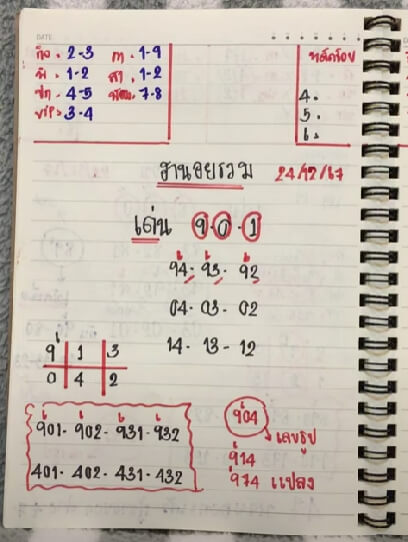 กิจ. 2-3 ກາ. 1-9
พิ. 1-2 สา. 1-2
ปก. 4-5 พิเศษ. 7-8
VIP. 3-4
หลักร้อย
4.
5.
6.
ฮานอยรวม 24/12/67
เด่น 9.0.1
94. 93. 92
04. 03. 02
14. 13 - 12
9 1 3
0 4 2
901. 902. 931. 932
401. 402. 431. 432
904
เลขธูป
914
974 แปลง